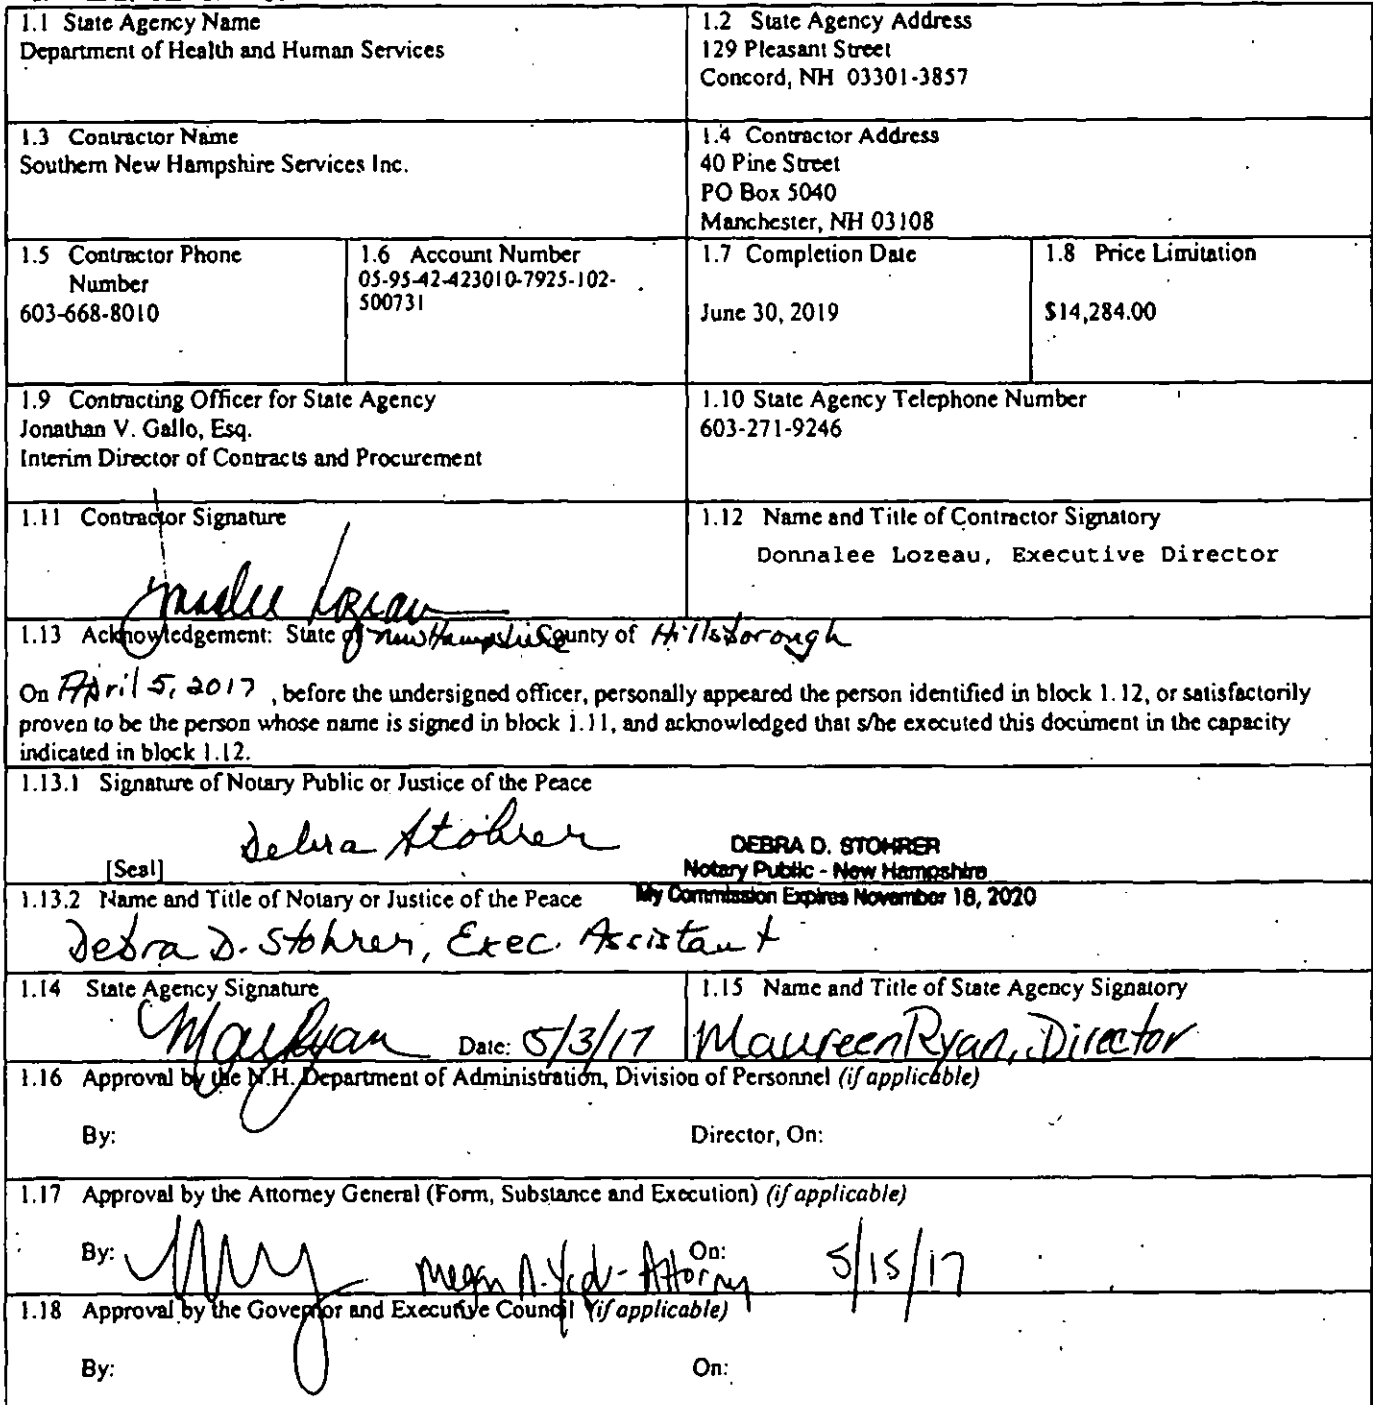 1.1 State Agency Name
Department of Health and Human Services
1.2 State Agency Address
129 Pleasant Street
Concord, NH 03301-3857
1.3 Contractor Name
Southern New Hampshire Services Inc.
1.4 Contractor Address
40 Pine Street
PO Box 5040
Manchester, NH 03108
1.5 Contractor Phone
Number
603-668-8010
1.6 Account Number
05-95-42-423010-7925-102-
500731
1.7 Completion Date
June 30, 2019
1.8 Price Limitation
$14,284.00
1.9 Contracting Officer for State Agency
Jonathan V. Gallo, Esq.
Interim Director of Contracts and Procurement
1.10 State Agency Telephone Number
603-271-9246
1.11 Contractor Signature
Donnalee Lozeau
1.12 Name and Title of Contractor Signatory
Donnalee Lozeau, Executive Director
1.13 Acknowledgement: State of New Hampshire County of Hillsborough
On April 5, 2017, before the undersigned officer, personally appeared the person identified in block 1.12, or satisfactorily
proven to be the person whose name is signed in block 1.11, and acknowledged that s/he executed this document in the capacity
indicated in block 1.12.
1.13.1 Signature of Notary Public or Justice of the Peace
Debra Stohrer
[Seal]
DEBRA D. STOHRER
Notary Public - New Hampshire
My Commission Expires November 18, 2020
1.13.2 Name and Title of Notary or Justice of the Peace
Debra D. Stohrer, Exec. Assistant
1.14 State Agency Signature
Date: 5/3/17
1.15 Name and Title of State Agency Signatory
Maureen Ryan, Director
1.16 Approval by the N.H. Department of Administration, Division of Personnel (if applicable)
By: Director, On:
1.17 Approval by the Attorney General (Form, Substance and Execution) (if applicable)
By: Megan A. - Attorney On: 5/15/17
1.18 Approval by the Governor and Executive Council (if applicable)
By: On: